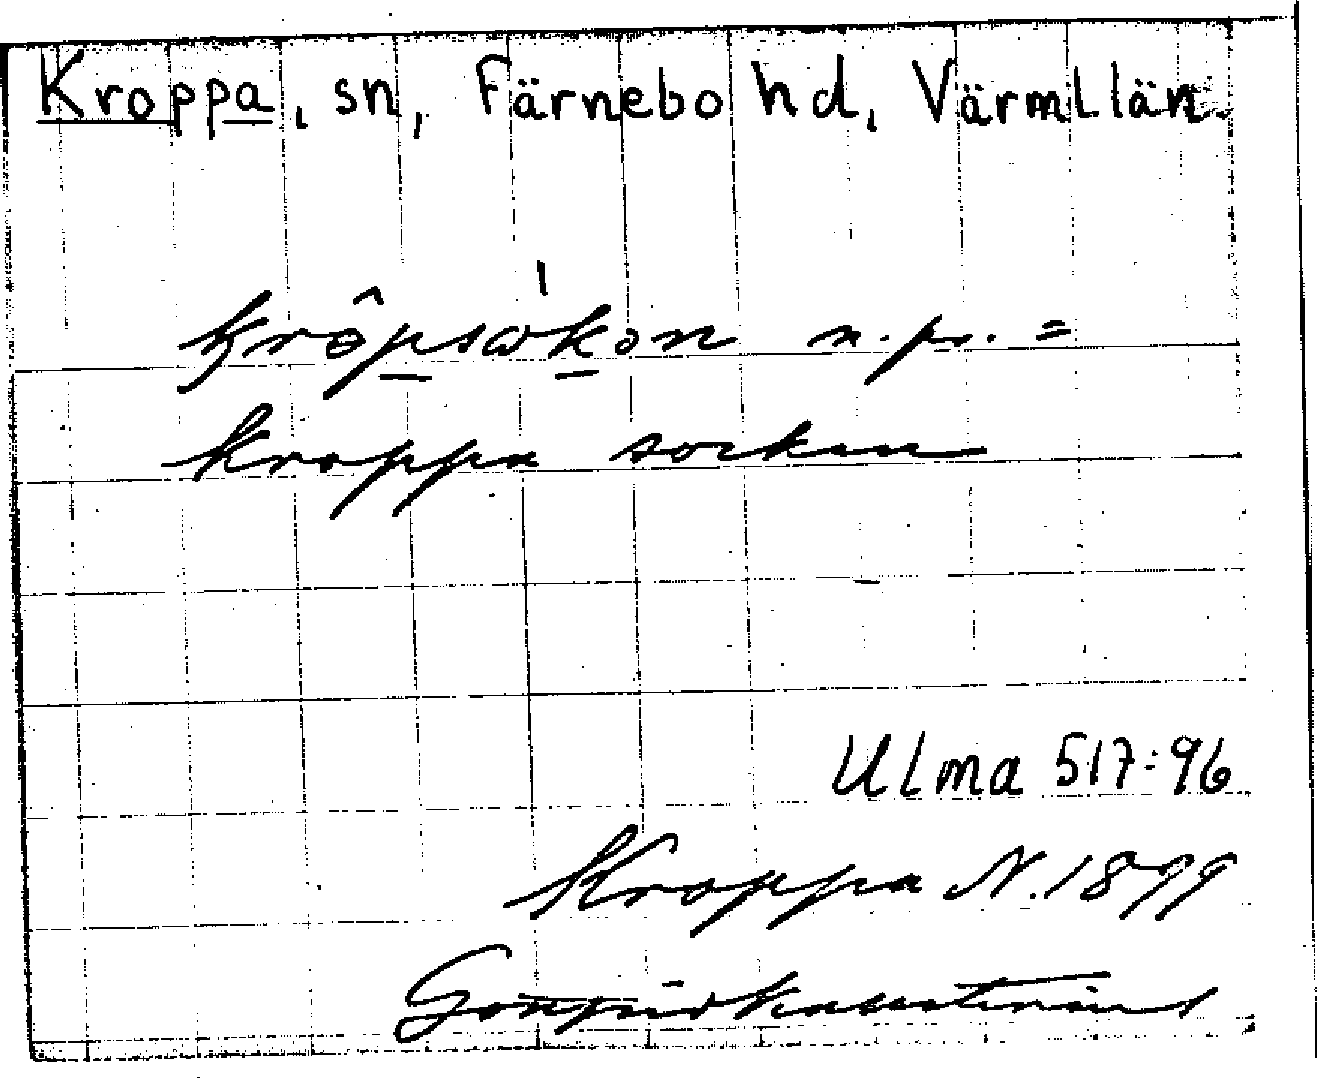 Kroppa, sn, Färnebo hd, Värml län.
krôpsωkən n.pr. =
Kroppa socken
Ulma 517:96
Kroppa N. 1899